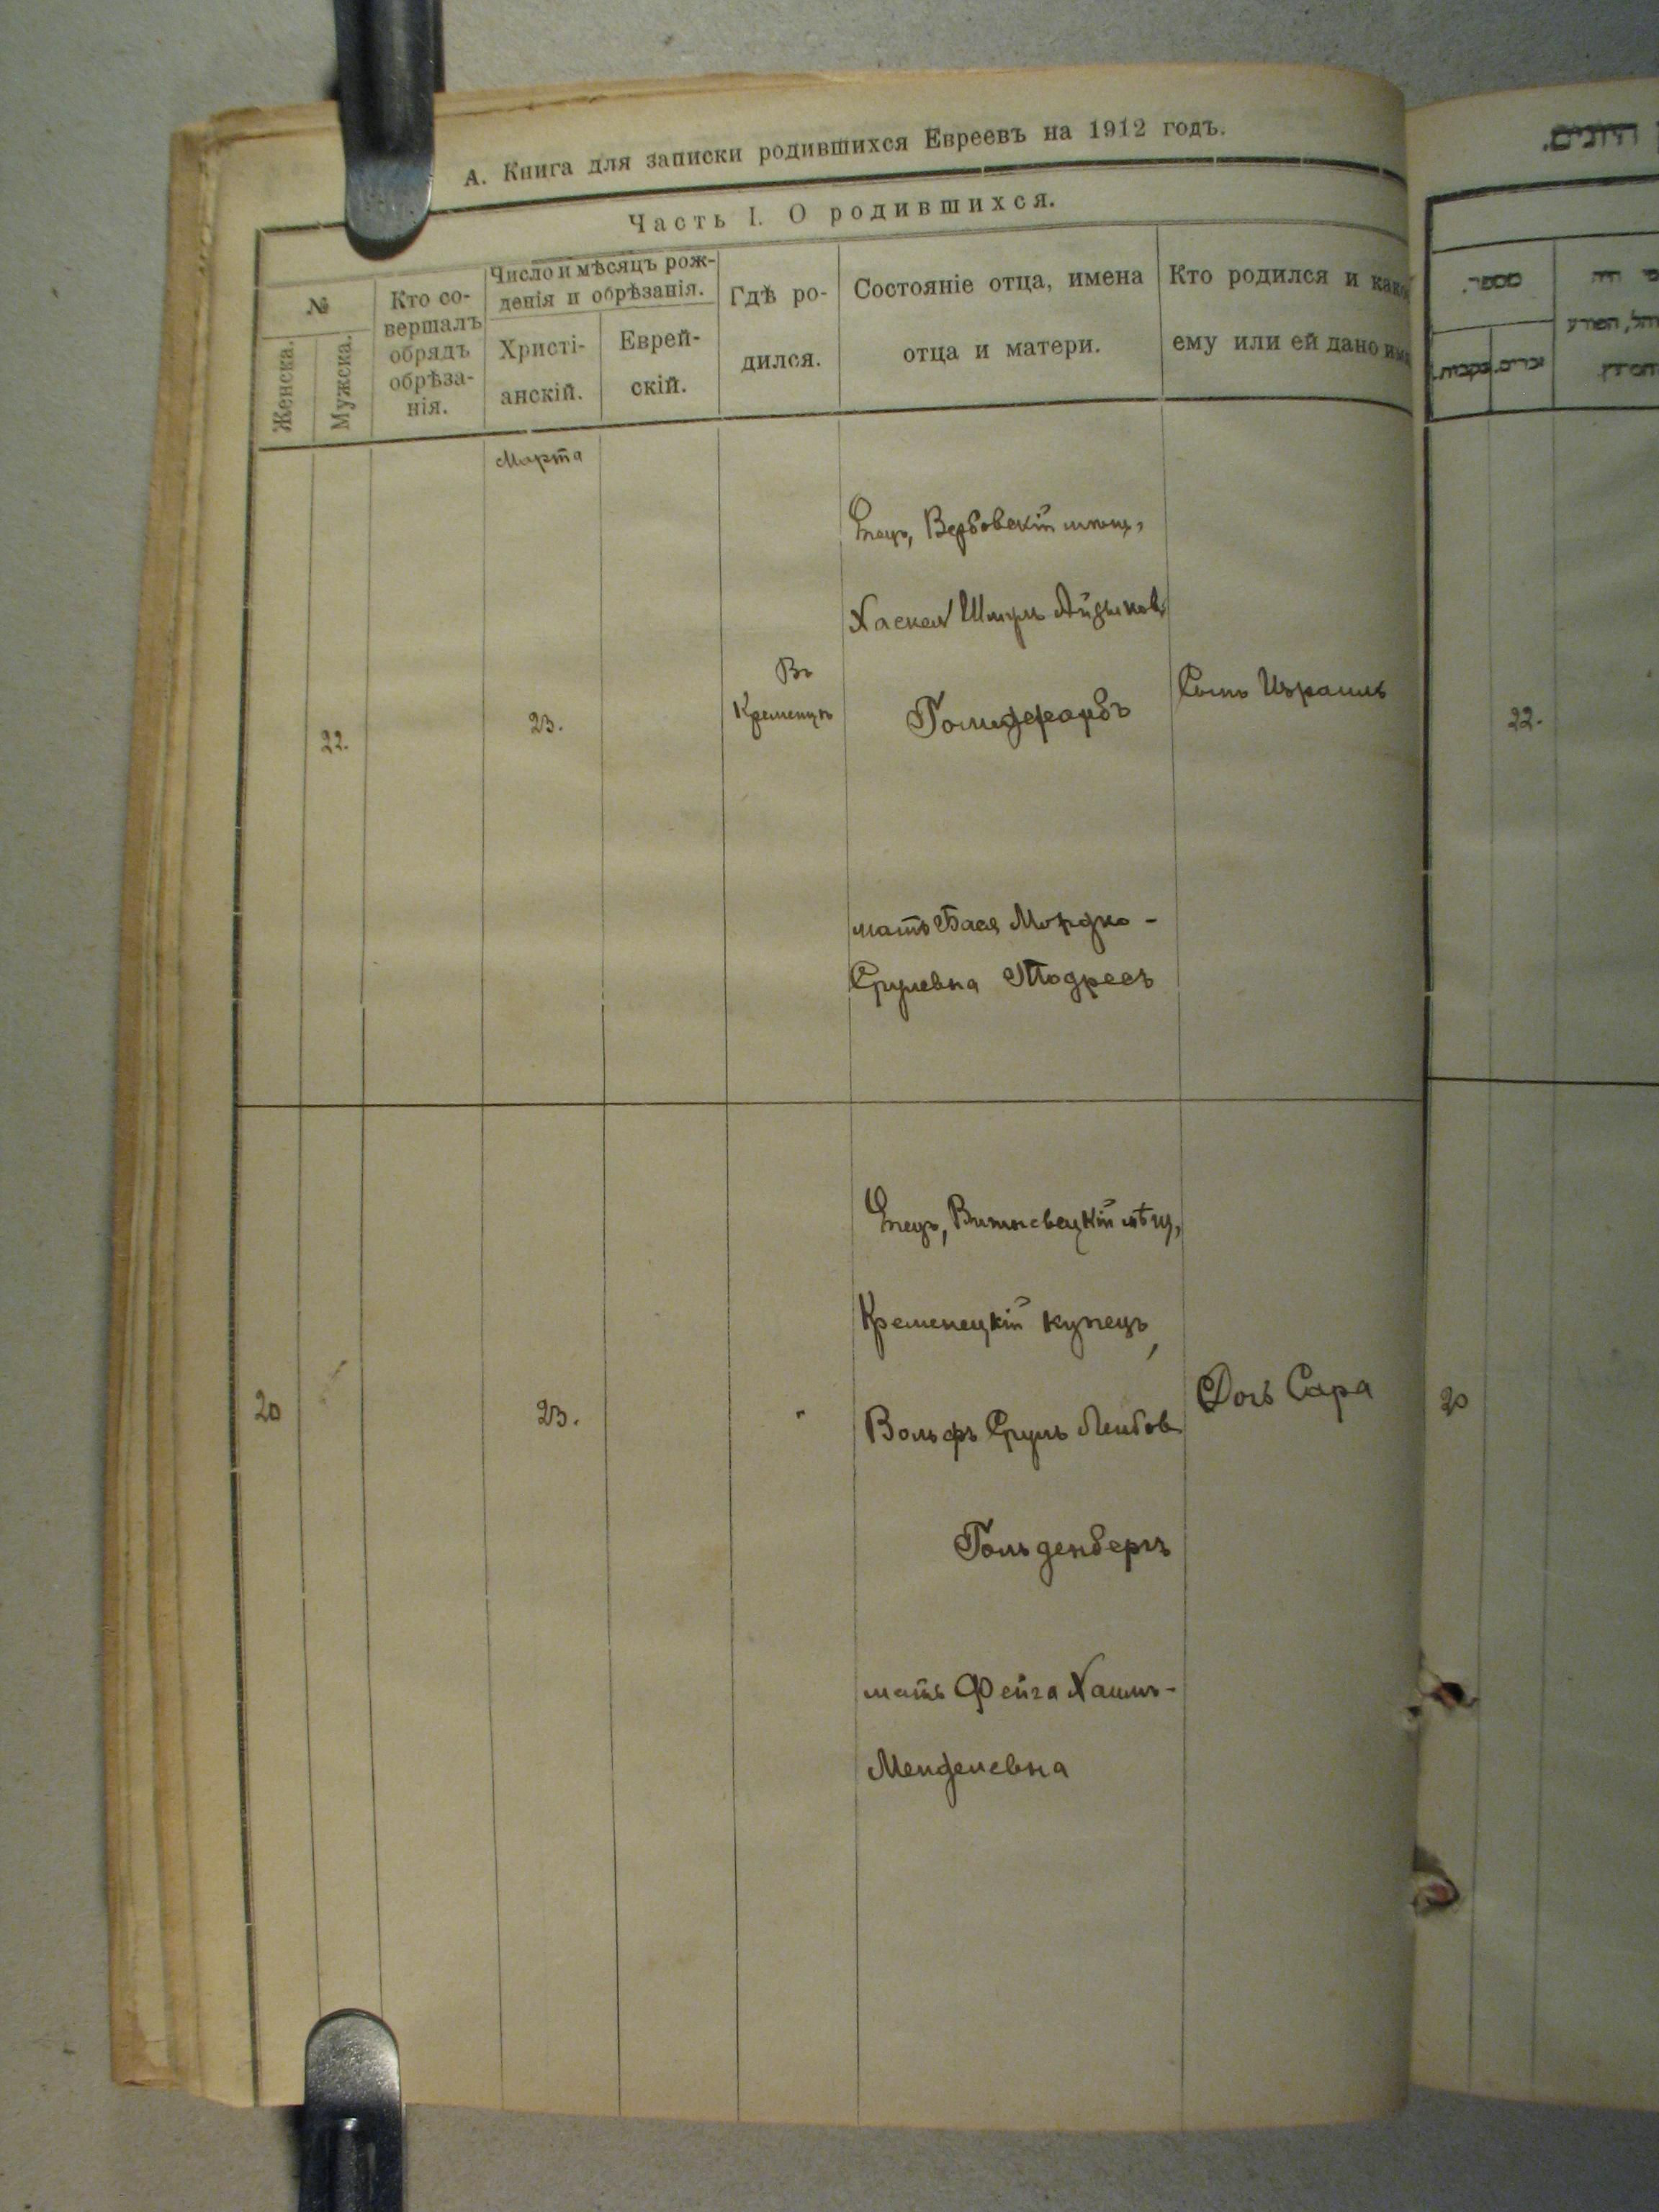 А. Книга для записки родившихся Евреевъ на 1912 годъ.
Часть I. О родившихся.
№
Женска.
Мужска.
Кто со-
вершалъ
обрядъ
обрѣза-
нія.
Число и мѣсяцъ рож-
денія и обрѣзанія.
Христі-
анскій.
Еврей-
скій.
Гдѣ ро-
дился.
Состояніе отца, имена
отца и матери.
Кто родился и какое
ему или ей дано имя
Марта
22.
23.
Въ
Кременцѣ
Отецъ, Вербовскій
Хаскел Шмуль
Гольдфарбъ
мать Бася Мордко-
Срулевна Тодресъ
Сынъ Израиль
20
23.
"
Отецъ, Вишневецкій мѣщ,
Кременецкій купецъ,
Вольфъ Сруль Лейбов
Гольденбергъ
мать Фейга Хаимъ-
Менделевна
Дочь Сара
מספר.
זכרים.
נקבות.
22.
20